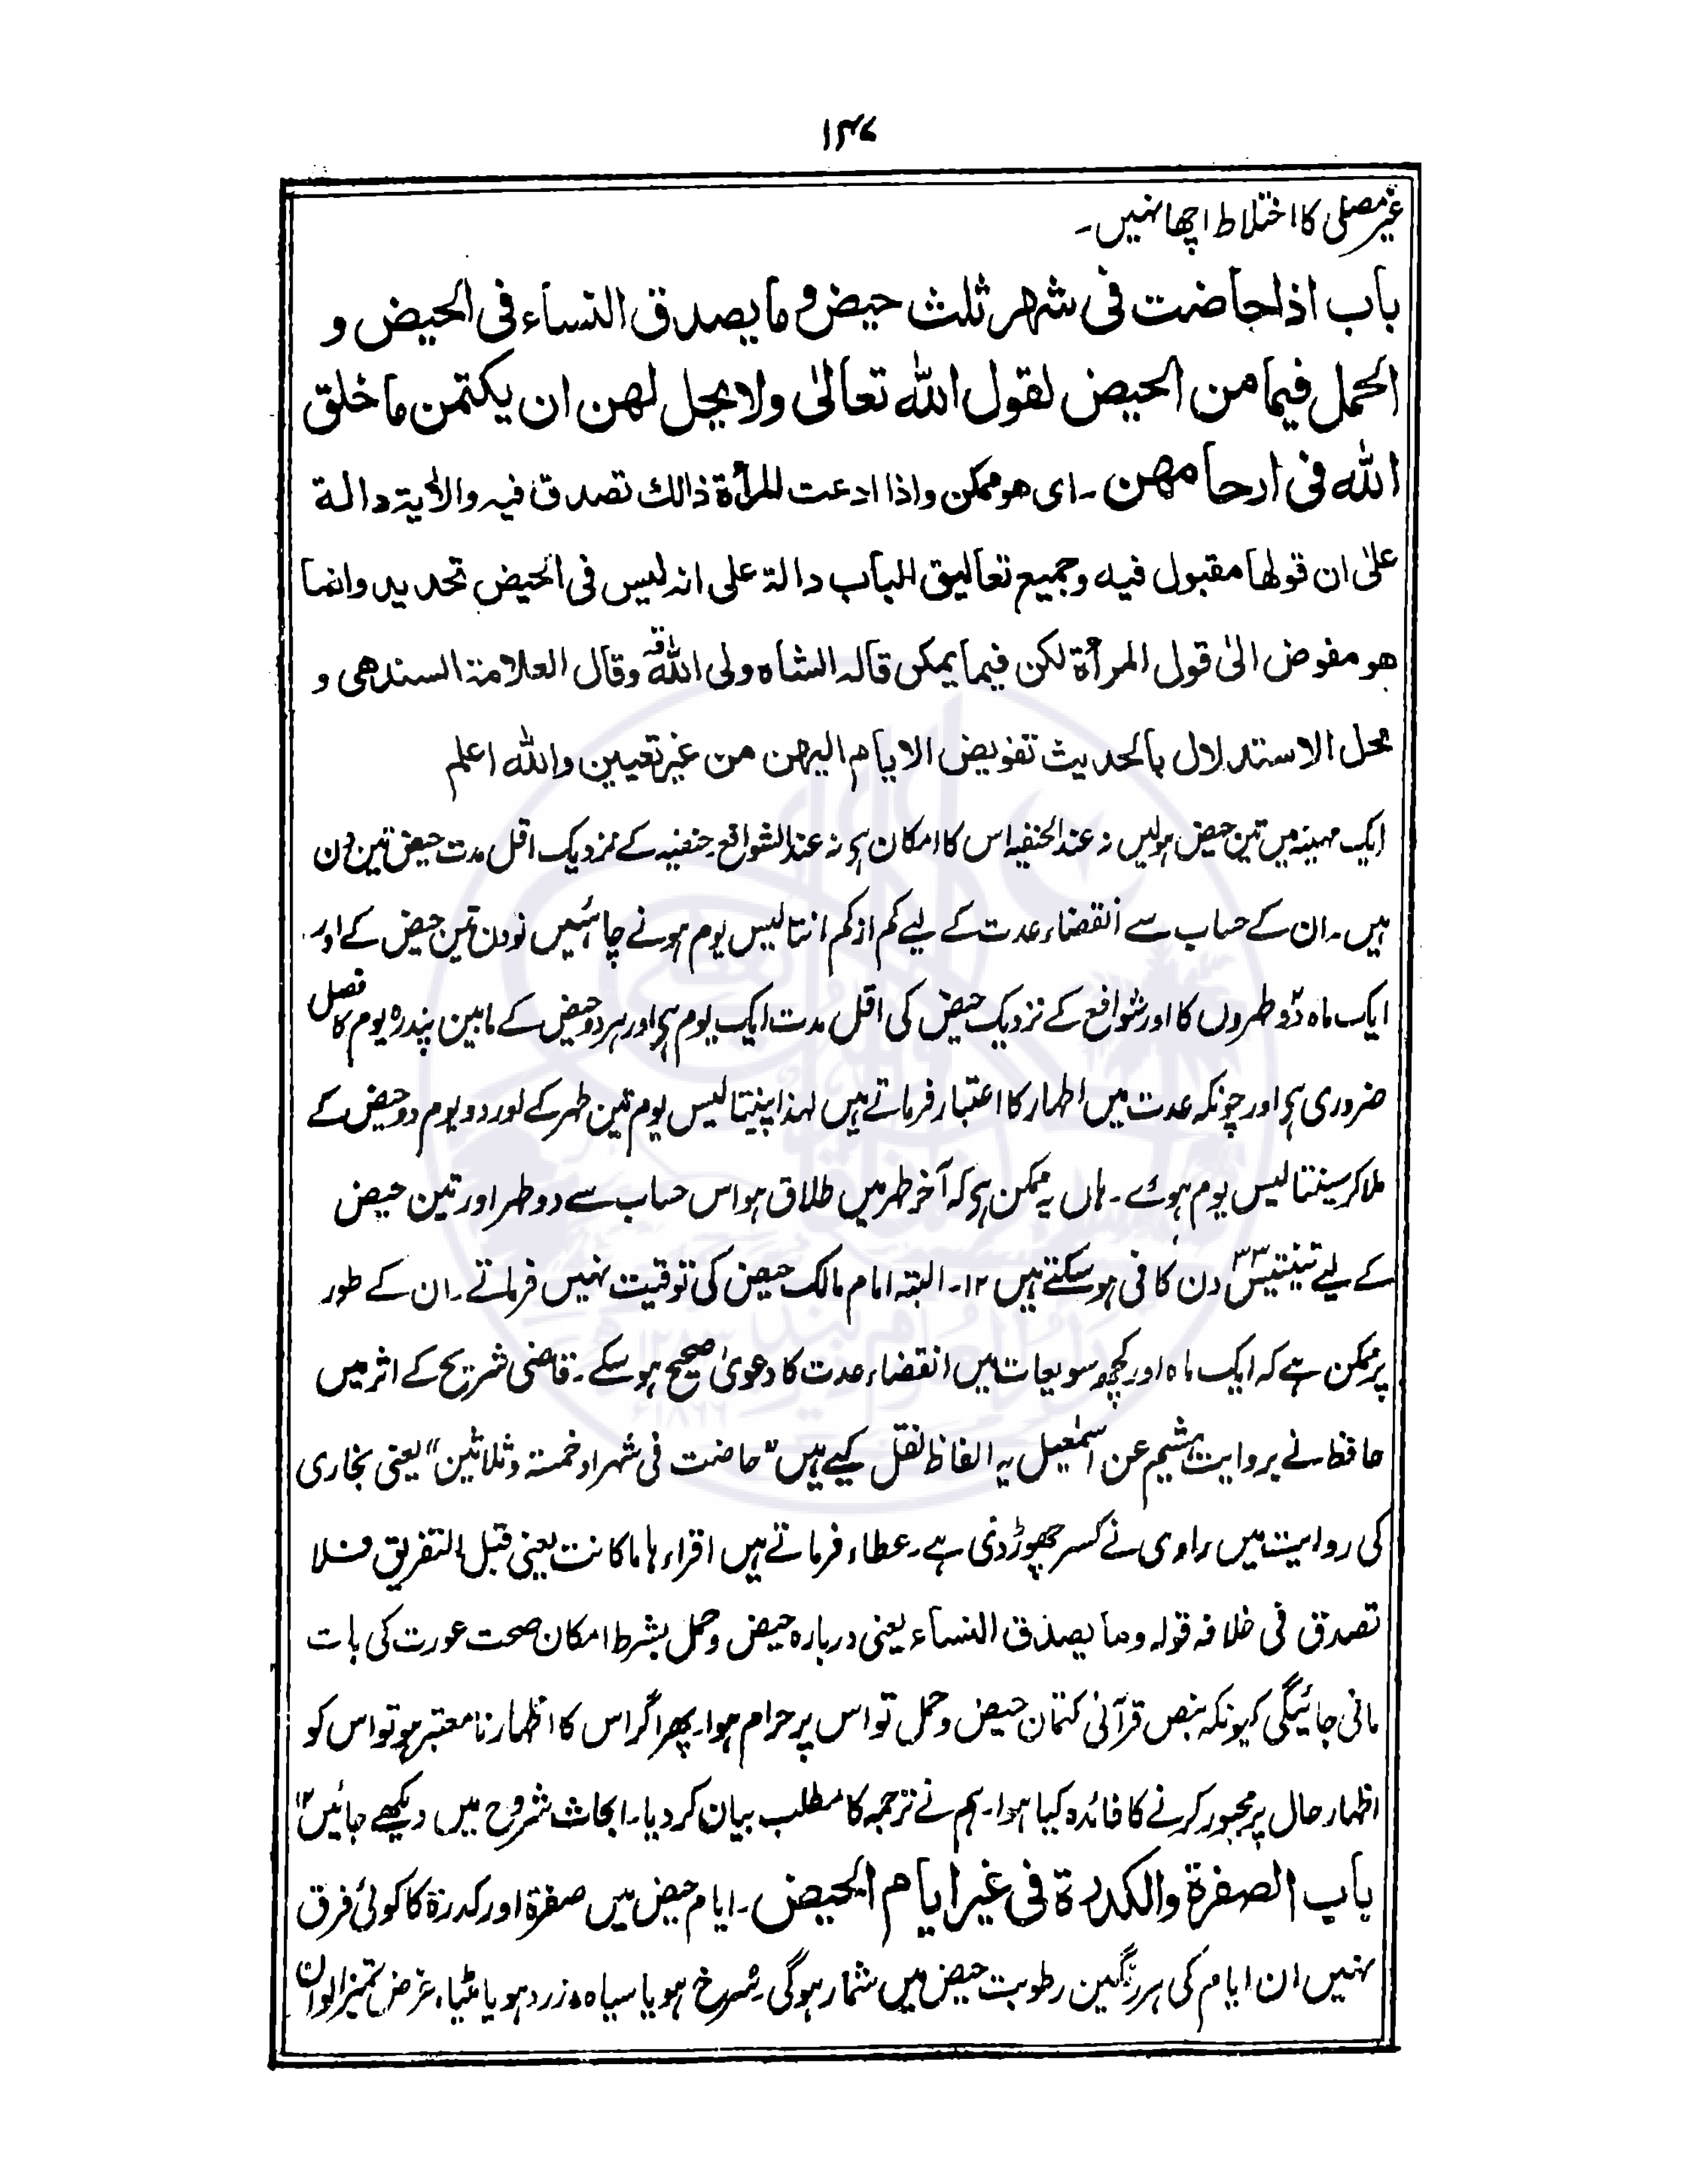 ۱۴۷
غیر مصلی کا اختلاط اچھا نہیں۔
باب اذا حاضت فی شهر ثلث حیض و ما یصدق النساء فی الحیض و
الحمل فیما من الحیض لقول الله تعالیٰ ولا یحل لهن ان یکتمن ما خلق
الله فی ارحامهن۔ ای هو ممکن واذا ادعت المرأة ذالك تصدق فیه والاٰیة دالة
علیٰ ان قولها مقبول فیه وجمیع تعالیق الباب دالة علی انه لیس فی الحیض تحدید وانما
هو مفوض الیٰ قول المرأة لکن فیما یمکن قاله الشاه ولی اللهؒ وقال العلامة السندهی و
محل الاستدلال بالحدیث تفویض الایام الیهن من غیر تعیین والله اعلم
ایک مہینہ میں تین حیض ہولیں نہ عند الحنفیہ اس کا امکان ہی نہ عند الشوافع۔ حنفیہ کے نزدیک اقل مدت حیض تین دن
ہیں۔ ان کے حساب سے انقضاء عدت کے لیے کم از کم انتالیس یوم ہونے چاہئیں نو دن تین حیض کے اور
ایک ماہ دو طہروں کا اور شوافع کے نزدیک حیض کی اقل مدت ایک یوم ہی اور ہر دو حیض کے مابین پندرہ یوم کا فصل
ضروری ہی اور چونکہ عدت میں اطہار کا اعتبار فرماتے ہیں لہذا پینتالیس یوم تین طہر کے اور دو یوم دو حیض کے
ملاکر سینتالیس یوم ہوئے۔ ہاں یہ ممکن ہی کہ آخر طہر میں طلاق ہو اس حساب سے دو طہر اور تین حیض
کے لیے تینتیس ۳۳ دن کافی ہوسکتے ہیں ۱۲۔ البتہ امام مالک حیض کی توقیت نہیں فرماتے۔ ان کے طور
پر ممکن ہے کہ ایک ماہ اور کچھ سویعات میں انقضاء عدت کا دعویٰ صحیح ہوسکے۔ قاضی شریح کے اثر میں
حافظ نے بروایت ہشیم عن اسمٰعیل یہ الفاظ نقل کیے ہیں "حاضت فی شہر او خمسة وثلاثین" یعنی بخاری
کی روایت میں راوی نے کسر چھوڑ دی ہے۔ عطاء فرماتے ہیں اقراءہا ما کانت یعنی قبل التفریق فلا
تصدق فی خلافہ قولہ وما یصدق النساء یعنی دربارہ حیض وحمل بشرط امکان صحت عورت کی بات
مانی جائیگی کیونکہ بنص قرآنی کتمان حیض وحمل تو اس پر حرام ہوا۔ پھر اگر اس کا اظہار نا معتبر ہو تو اس کو
اظہار حال پر مجبور کرنے کا فائدہ کیا ہوا۔ ہم نے ترجمہ کا مطلب بیان کردیا۔ ابحاث شروح میں دیکھے جائیں ۱۲
باب الصفرة والکدرة فی غیر ایام الحیض۔ ایام حیض میں صفرة اور کدرة کا کوئی فرق
نہیں ان ایام کی ہر رنگین رطوبت حیض میں شمار ہوگی۔ سُرخ ہو یا سیاہ، زرد ہو یا مٹیا، غرض تمیز الوان